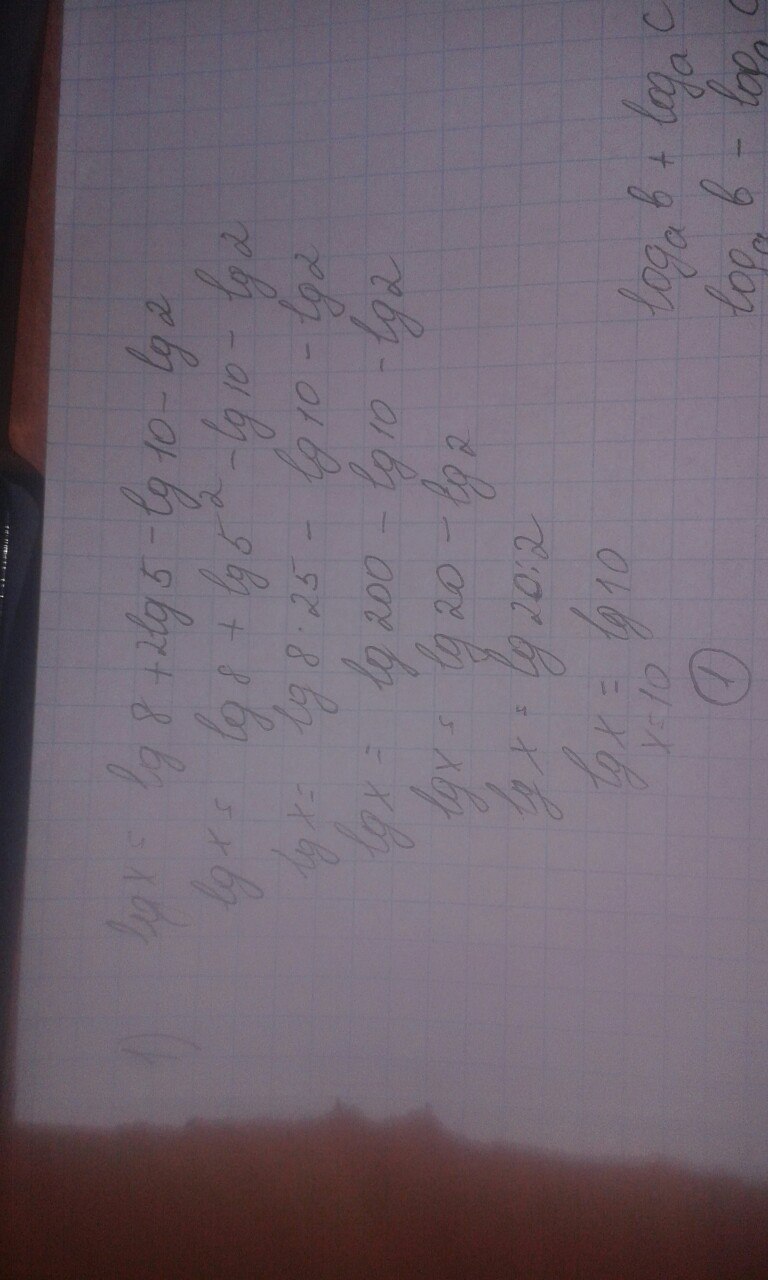 1) lg x = lg 8 + 2lg 5 - lg 10 - lg 2
lg x = lg 8 + lg 5² - lg 10 - lg 2
lg x = lg 8 · 25 - lg 10 - lg 2
lg x = lg 200 - lg 10 - lg 2
lg x = lg 20 - lg 2
lg x = lg 20:2
lg x = lg 10
x = 10
1
logₐ b + logₐ c
logₐ b - logₐ c